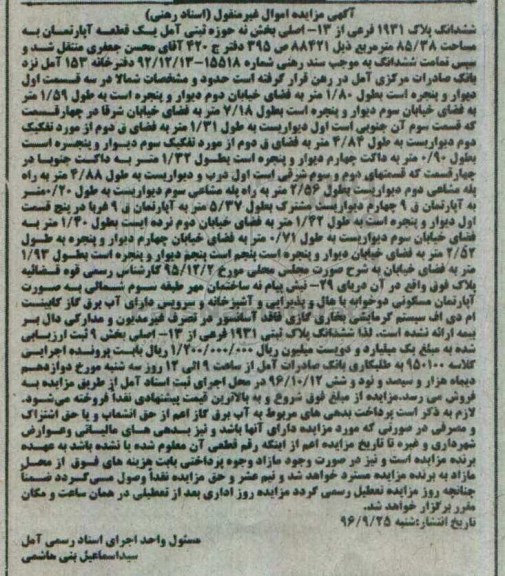 آگهی مزایده اموال غیرمنقول (اسناد رهنی)
ششدانگ پلاک ۱۹۳۱ فرعی از ۱۳- اصلی بخش نه حوزه ثبتی آمل یک قطعه آپارتمان به
مساحت ۸۵/۳۸ مترمربع ذیل ۸۸۴۲۱ ص ۳۹۵ دفتر ج ۴۲۰ آقای محسن جعفری منتقل شد و
سپس تمامت ششدانگ به موجب سند رهنی شماره ۱۵۵۱۸-۹۲/۱۲/۱۳ دفترخانه ۱۵۳ آمل نزد
بانک صادرات مرکزی آمل در رهن قرار گرفته است حدود و مشخصات شمالا در سه قسمت اول
دیوار و پنجره است بطول ۱/۸۰ متر به فضای خیابان دوم دیوار و پنجره است بطول ۱/۵۹ متر
به فضای خیابان سوم دیوار و پنجره است بطول ۲/۱۸ متر به فضای خیابان شرقا در چهارقسمت
که قسمت سوم آن جنوبی است اول دیواریست به طول ۱/۳۱ متر به فضای ق دوم از مورد تفکیک
دوم دیواریست به طول ۴/۸۴ متر به فضای ق دوم از مورد تفکیک سوم دیوار و پنجره است
بطول ۰/۹۰ متر به داکت چهارم دیوار و پنجره است بطول ۱/۳۲ متر به داکت جنوبا در
چهارقسمت که قسمتهای دوم و سوم شرقی است اول درب و دیواریست به طول ۴/۸۸ متر به راه
پله مشاعی دوم دیواریست بطول ۲/۵۶ متر به راه پله مشاعی سوم دیواریست به طول ۰/۲۰متر
به آپارتمان ق ۹ چهارم دیواریست مشترک بطول ۵/۳۷ متر به آپارتمان ق ۹ غربا در پنج قسمت
اول دیوار و پنجره است به طول ۱/۶۲ متر به فضای خیابان دوم نرده ایست بطول ۱/۳۰ متر به
فضای خیابان سوم دیواریست به طول ۰/۷۱ متر به فضای خیابان چهارم دیوار و پنجره به طول
۲/۵۲ متر به فضای خیابان دیوار و پنجره است پنجم است پنجم دیوار و پنجره است بطول ۱/۹۳
متر به فضای خیابان به شرح صورت مجلس محلی مورخ ۹۵/۱۲/۲ کارشناس رسمی قوه قضائیه
پلاک فوق واقع در آن دریای ۲۹- نبش پیام نه ساختمان مهر طبقه سوم شمالی به صورت
آپارتمان مسکونی دوخوابه با هال و پذیرایی و آشپزخانه و سرویس دارای آب برق گاز کابینت
ام دی اف سیستم گرمایشی بخاری گازی فاقد آسانسور در تصرف غیرمدیون و مدارکی دال بر
بیمه ارائه نشده است. لذا ششدانگ پلاک ثبتی ۱۹۳۱ فرعی از ۱۳- اصلی بخش ۹ ثبت ارزیابی
شده به مبلغ یک میلیارد و دویست میلیون ریال ۱/۲۰۰/۰۰۰/۰۰۰ ریال بابت پرونده اجرایی
کلاسه ۹۵۰۱۰۰ به طلبکاری بانک صادرات آمل از ساعت ۹ الی ۱۲ روز سه شنبه مورخ دوازدهم
دیماه هزار و سیصد و نود و شش ۹۶/۱۰/۱۲ در محل اجرای ثبت اسناد آمل از طریق مزایده به
فروش می رسد.مزایده از مبلغ فوق شروع و به بالاترین قیمت پیشنهادی نقدا فروخته می‌شود.
لازم به ذکر است پرداخت بدهی های مربوط به آب برق گاز اعم از حق انشعاب و یا حق اشتراک
و مصرفی در صورتی که مورد مزایده دارای آنها باشد و نیز بدهی های مالیاتی وعوارض
شهرداری و غیره تا تاریخ مزایده اعم از اینکه رقم قطعی آن معلوم شده یا نشده باشد به عهده
برنده مزایده است و نیز در صورت وجود مازاد وجوه پرداختی بابت هزینه های فوق از محل
مازاد به برنده مزایده مسترد خواهد شد و نیم عشر و حق مزایده نقدا وصول می‌گردد ضمنا
چنانچه روز مزایده تعطیل رسمی گردد مزایده روز اداری بعد از تعطیلی در همان ساعت و مکان
مقرر برگزار خواهد شد.
تاریخ انتشار:شنبه ۹۶/۹/۲۵
مسئول واحد اجرای اسناد رسمی آمل
سیداسماعیل بنی هاشمی